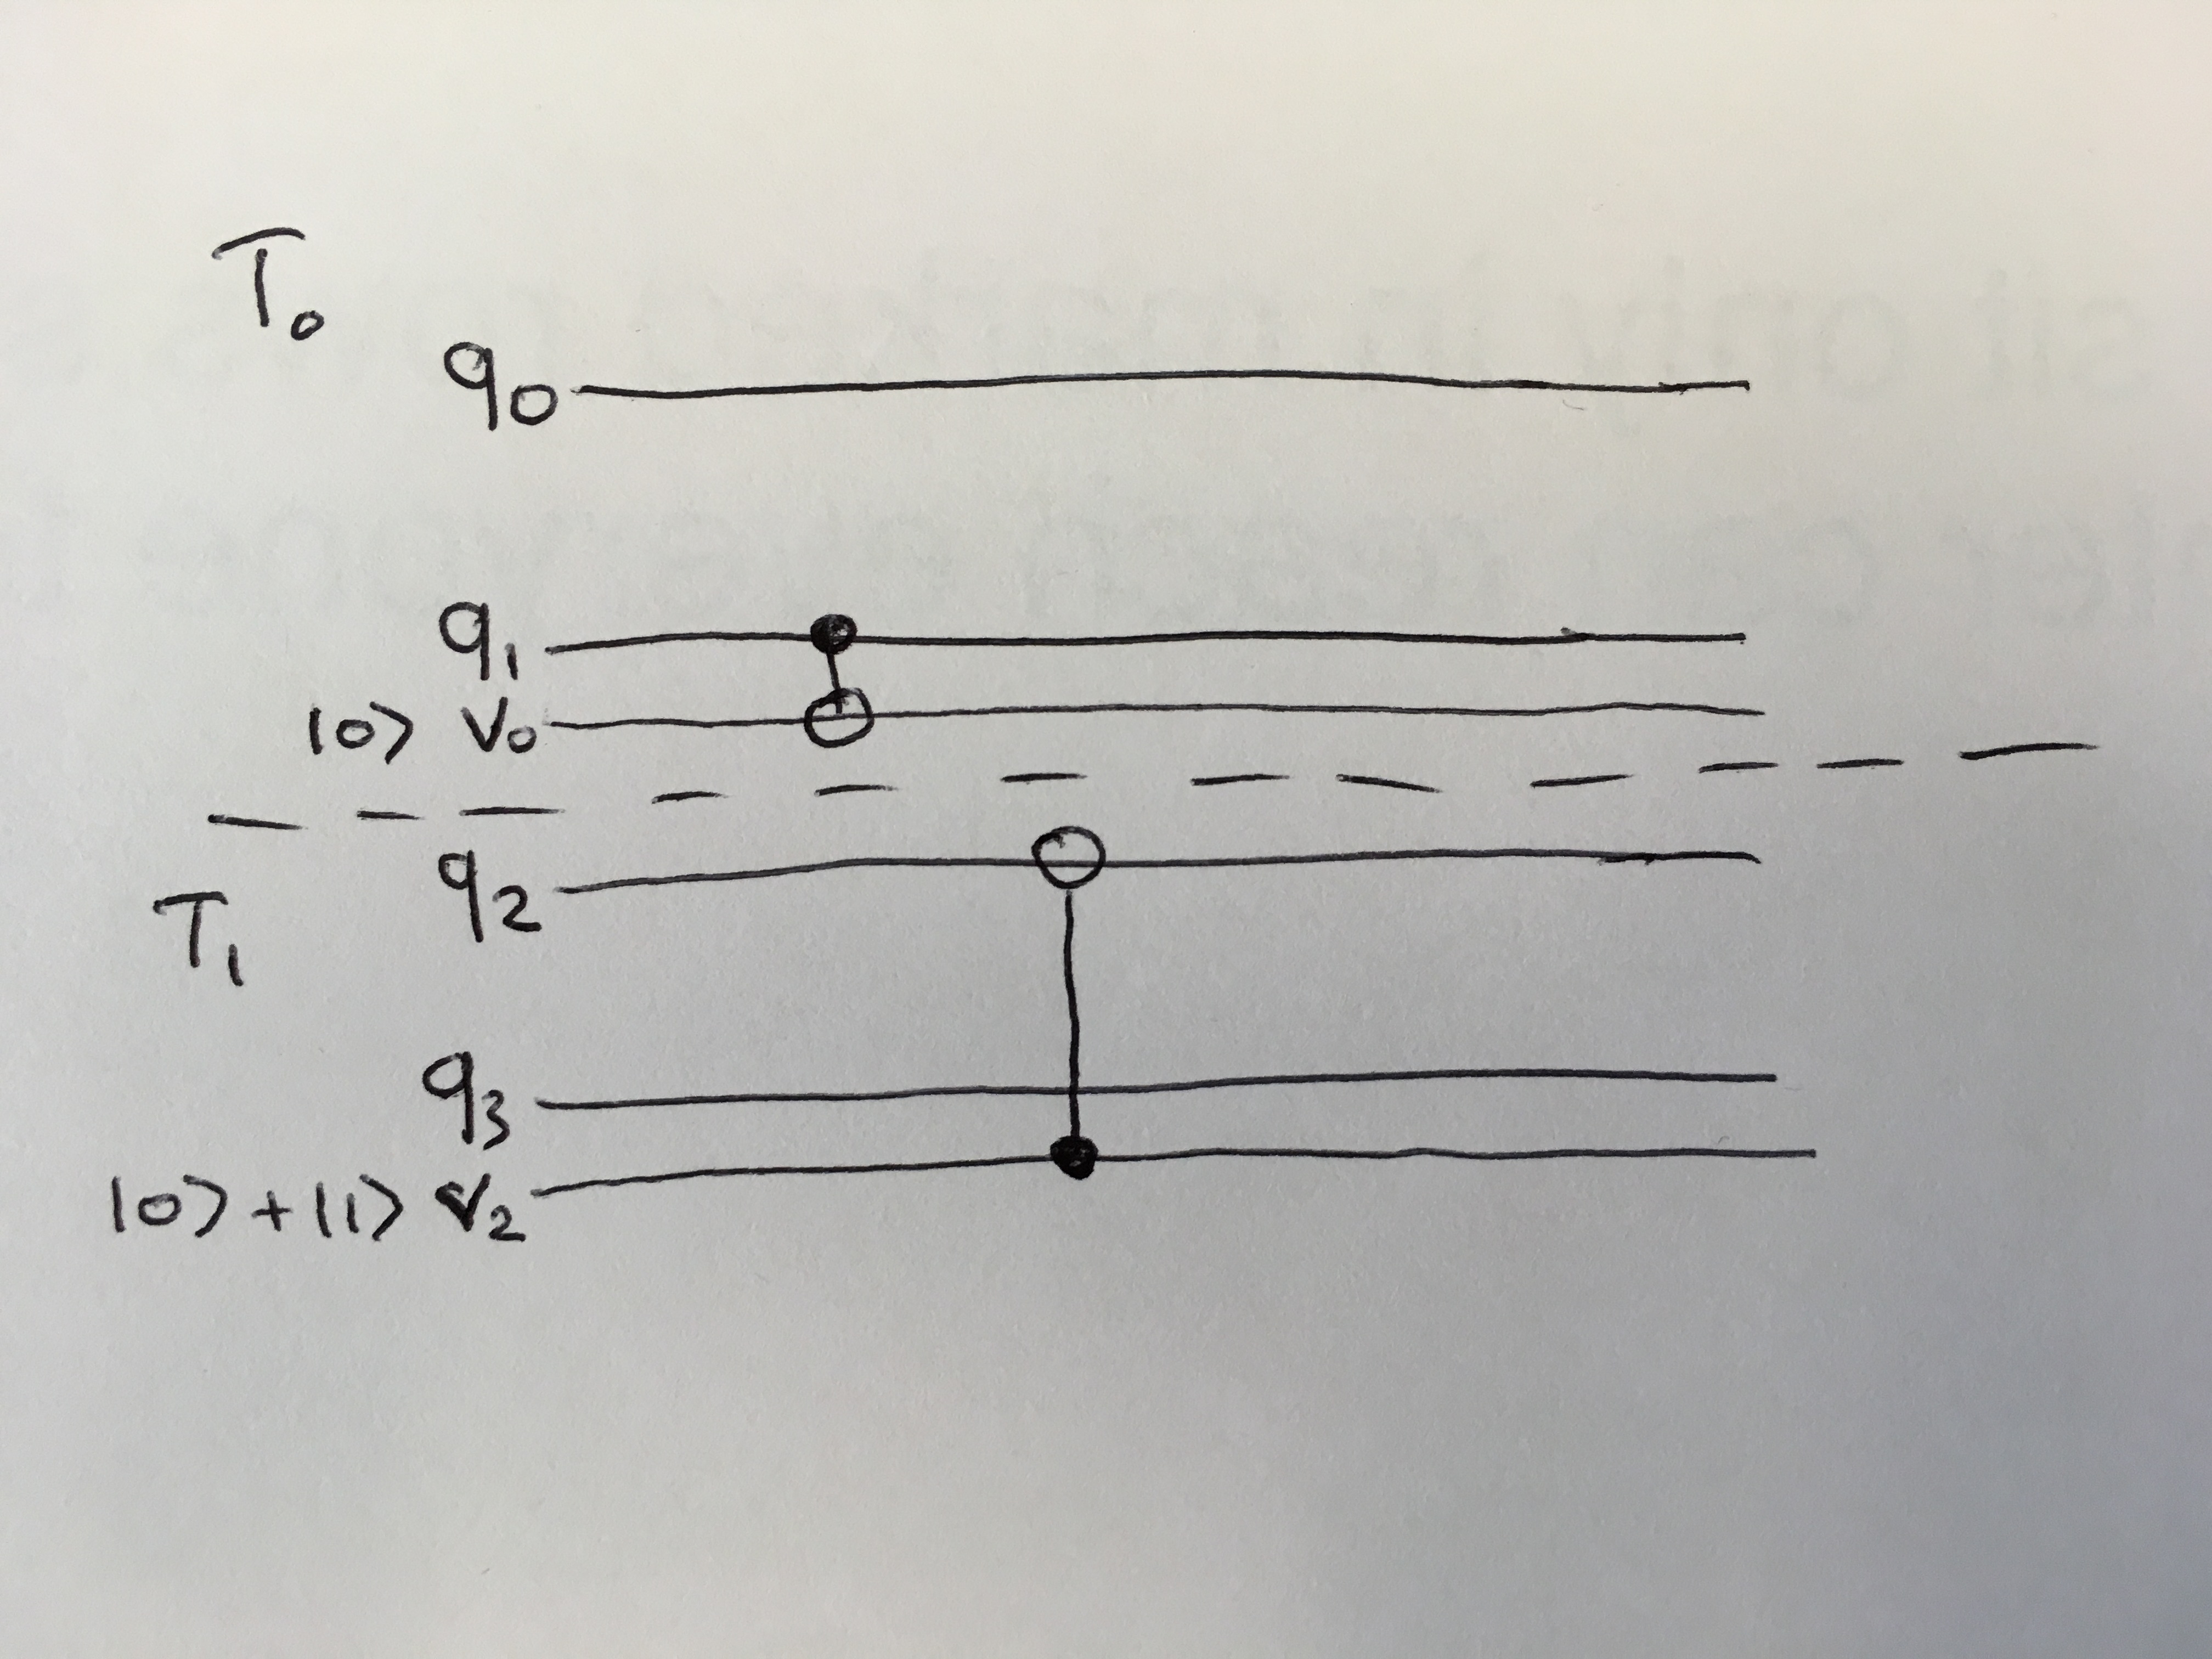 T₀
q₀
q₁
|0⟩ v₀
q₂
T₁
q₃
|0⟩+|1⟩ v₂